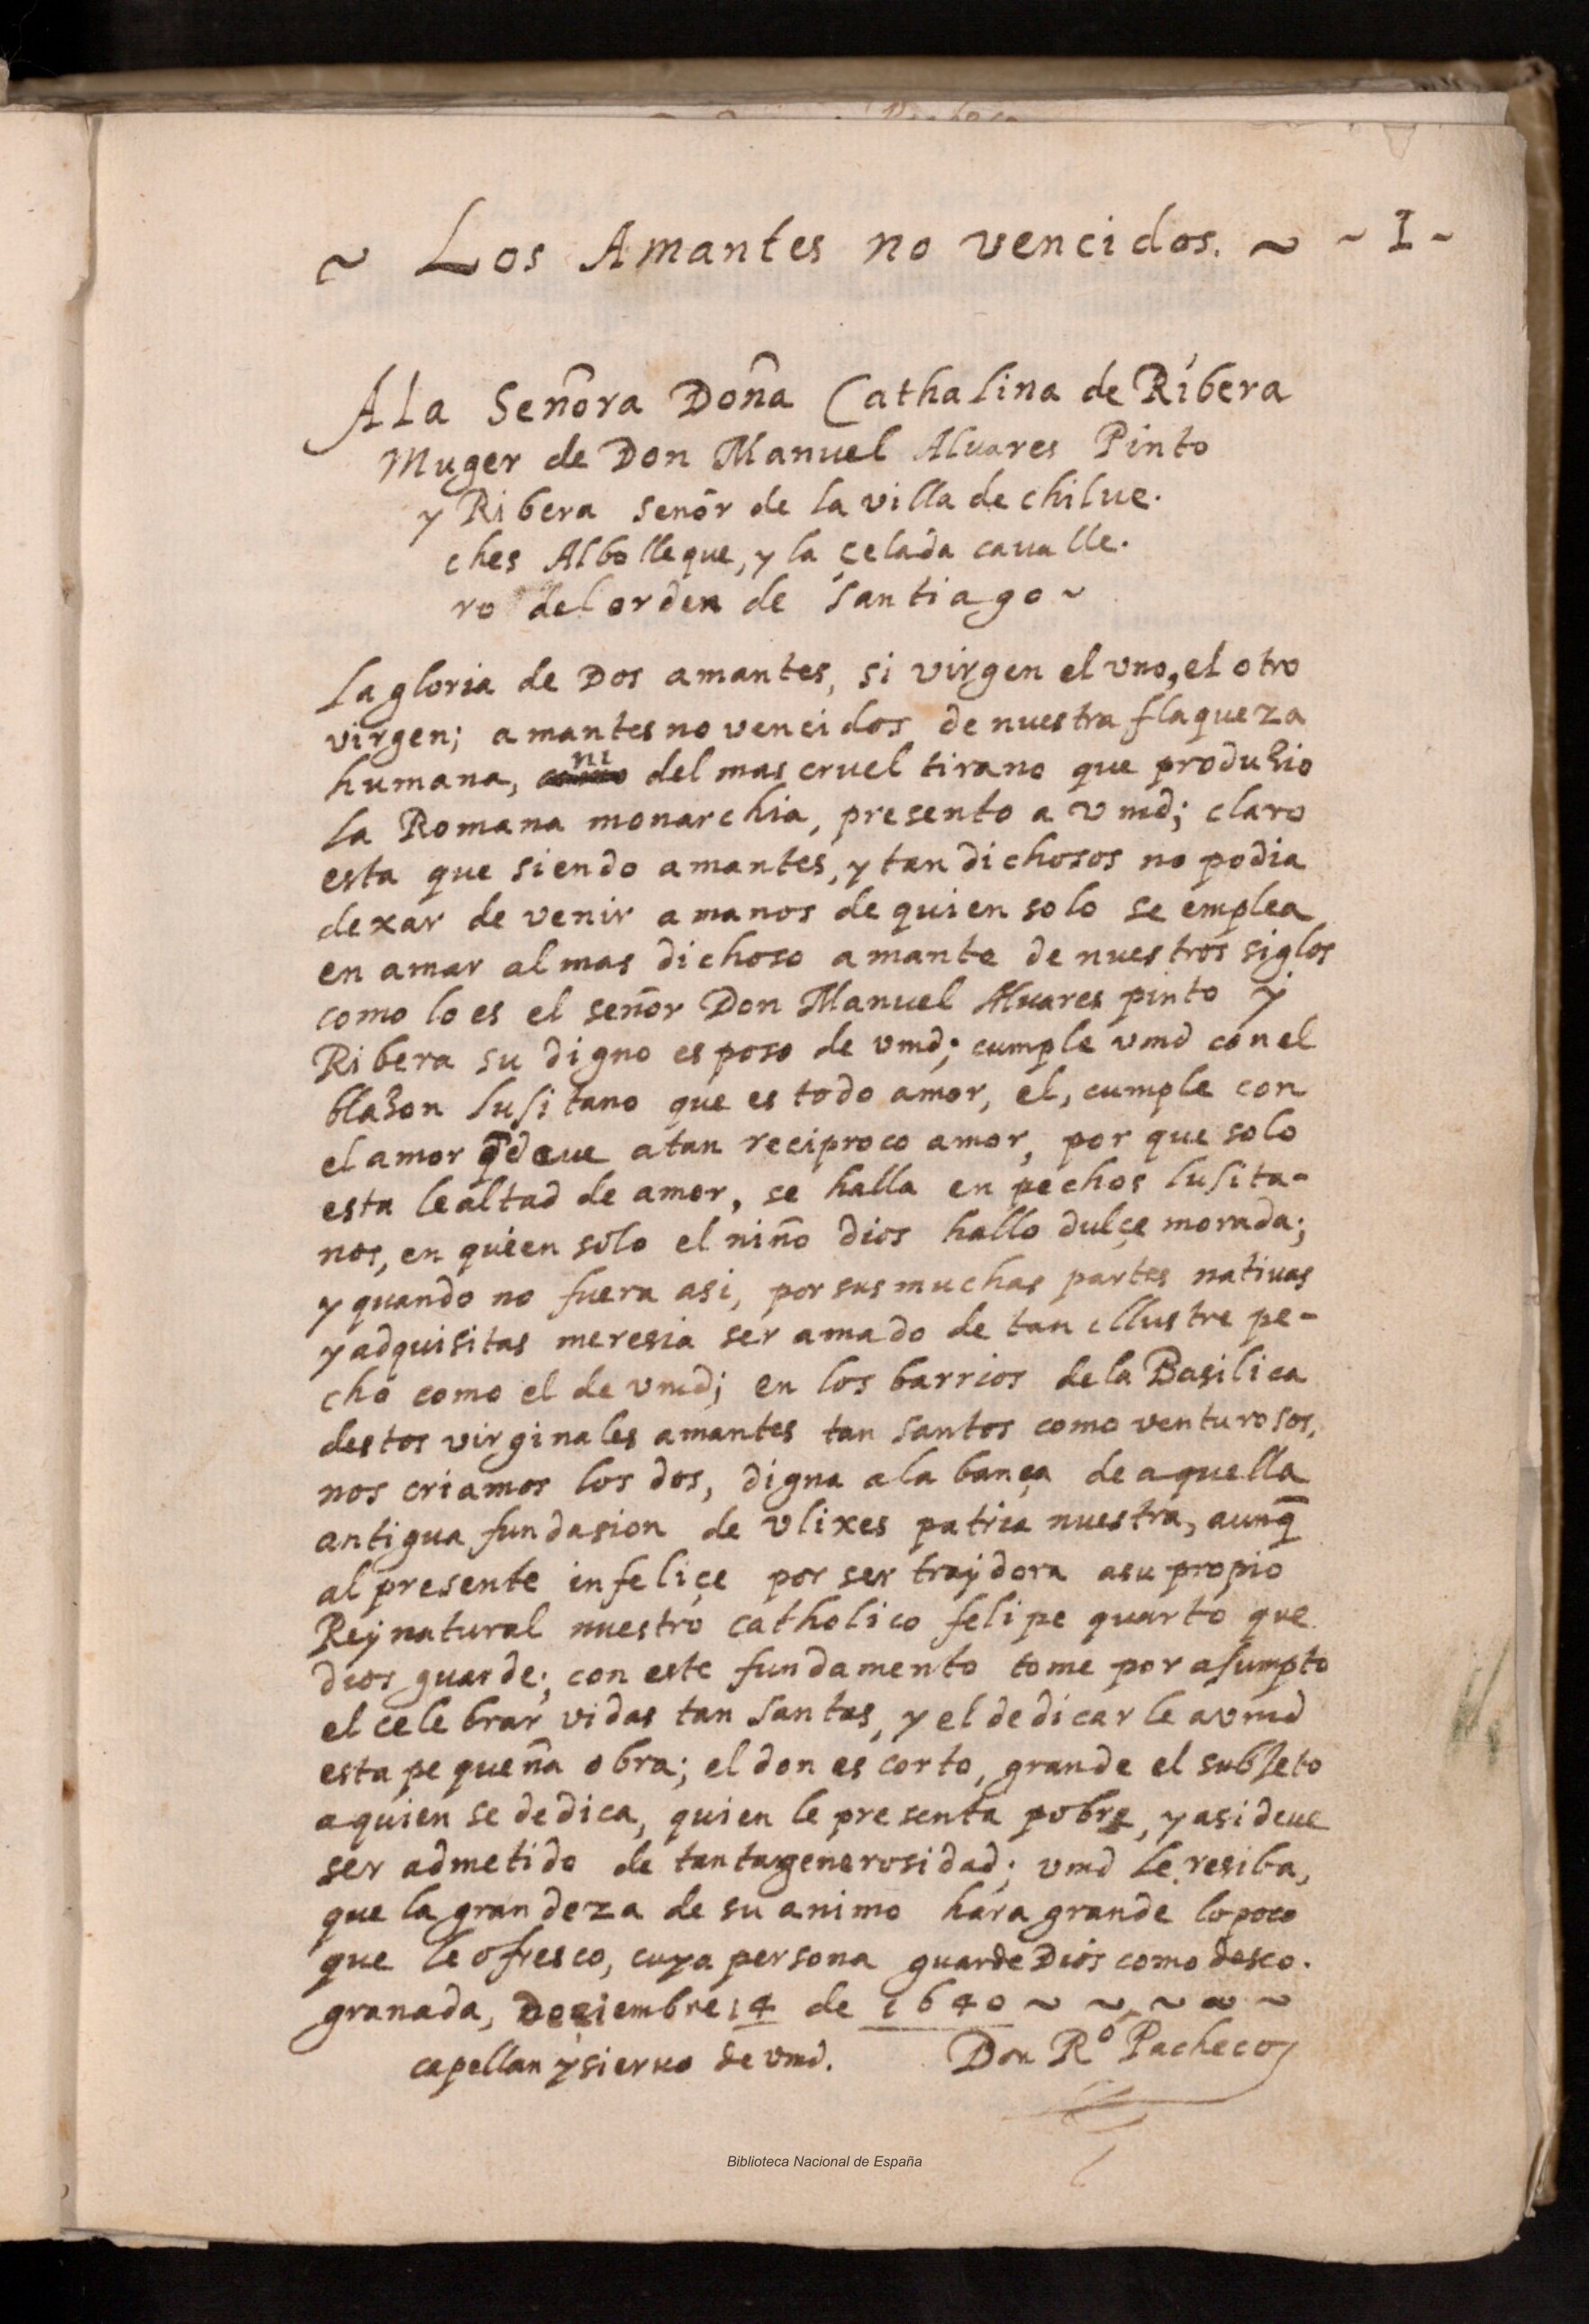 ~ Los Amantes no vencidos. ~ ~ I ~
A La Señora Doña Cathalina de Ribera
Muger de Don Manuel Aluares Pinto
y Ribera señor de la villa de chilue.
ches Albolleque, y la çelada caualle.
ro del orden de Santiago ~
La gloria de Dos amantes, si virgen el vno, el otro
virgen; amantes no vencidos de nuestra flaqueza
humana, ni del mas cruel tirano que produzio
la Romana monarchia, presento a vmd; claro
esta que siendo amantes, y tan dichosos no podia
dexar de venir a manos de quien solo se emplea
en amar al mas dichoso amante de nuestros siglos
como lo es el señor Don Manuel Aluares pinto y
Ribera su digno esposo de vmd; cumple vmd con el
blazon lusitano que es todo amor, el, cumple con
el amor q̃ deue a tan reciproco amor, por que solo
esta lealtad de amor, se halla en pechos lusita-
nos, en quien solo el niño dios hallo dulçe morada;
y quando no fuera asi, por sus muchas partes natiuas
y adquisitas meresia ser amado de tan illustre pe-
cho como el de vmd; en los barrios de la Basilica
destos virginales amantes tan santos como venturosos,
nos criamos los dos, digna alabança de aquella
antigua fundasion de vlixes patria nuestra, aunq̃
al presente infeliçe por ser traydora a su propio
Rey natural nuestro catholico felipe quarto que
dios guarde; con este fundamento tome por asumpto
el celebrar vidas tan santas, y el dedicarle a vmd
esta pequeña obra; el don es corto, grande el subjeto
a quien se dedica, quien le presenta pobre, y asi deue
ser admetido de tanta generosidad; vmd le resiba,
que la grandeza de su animo hara grande lo poco
que le ofresco, cuya persona guarde Dios como deseo.
granada, Deziembre 14 de 1640 ~ ~ ~ ~ ~
capellan y sieruo de vmd. Don Rº Pacheco
Biblioteca Nacional de España